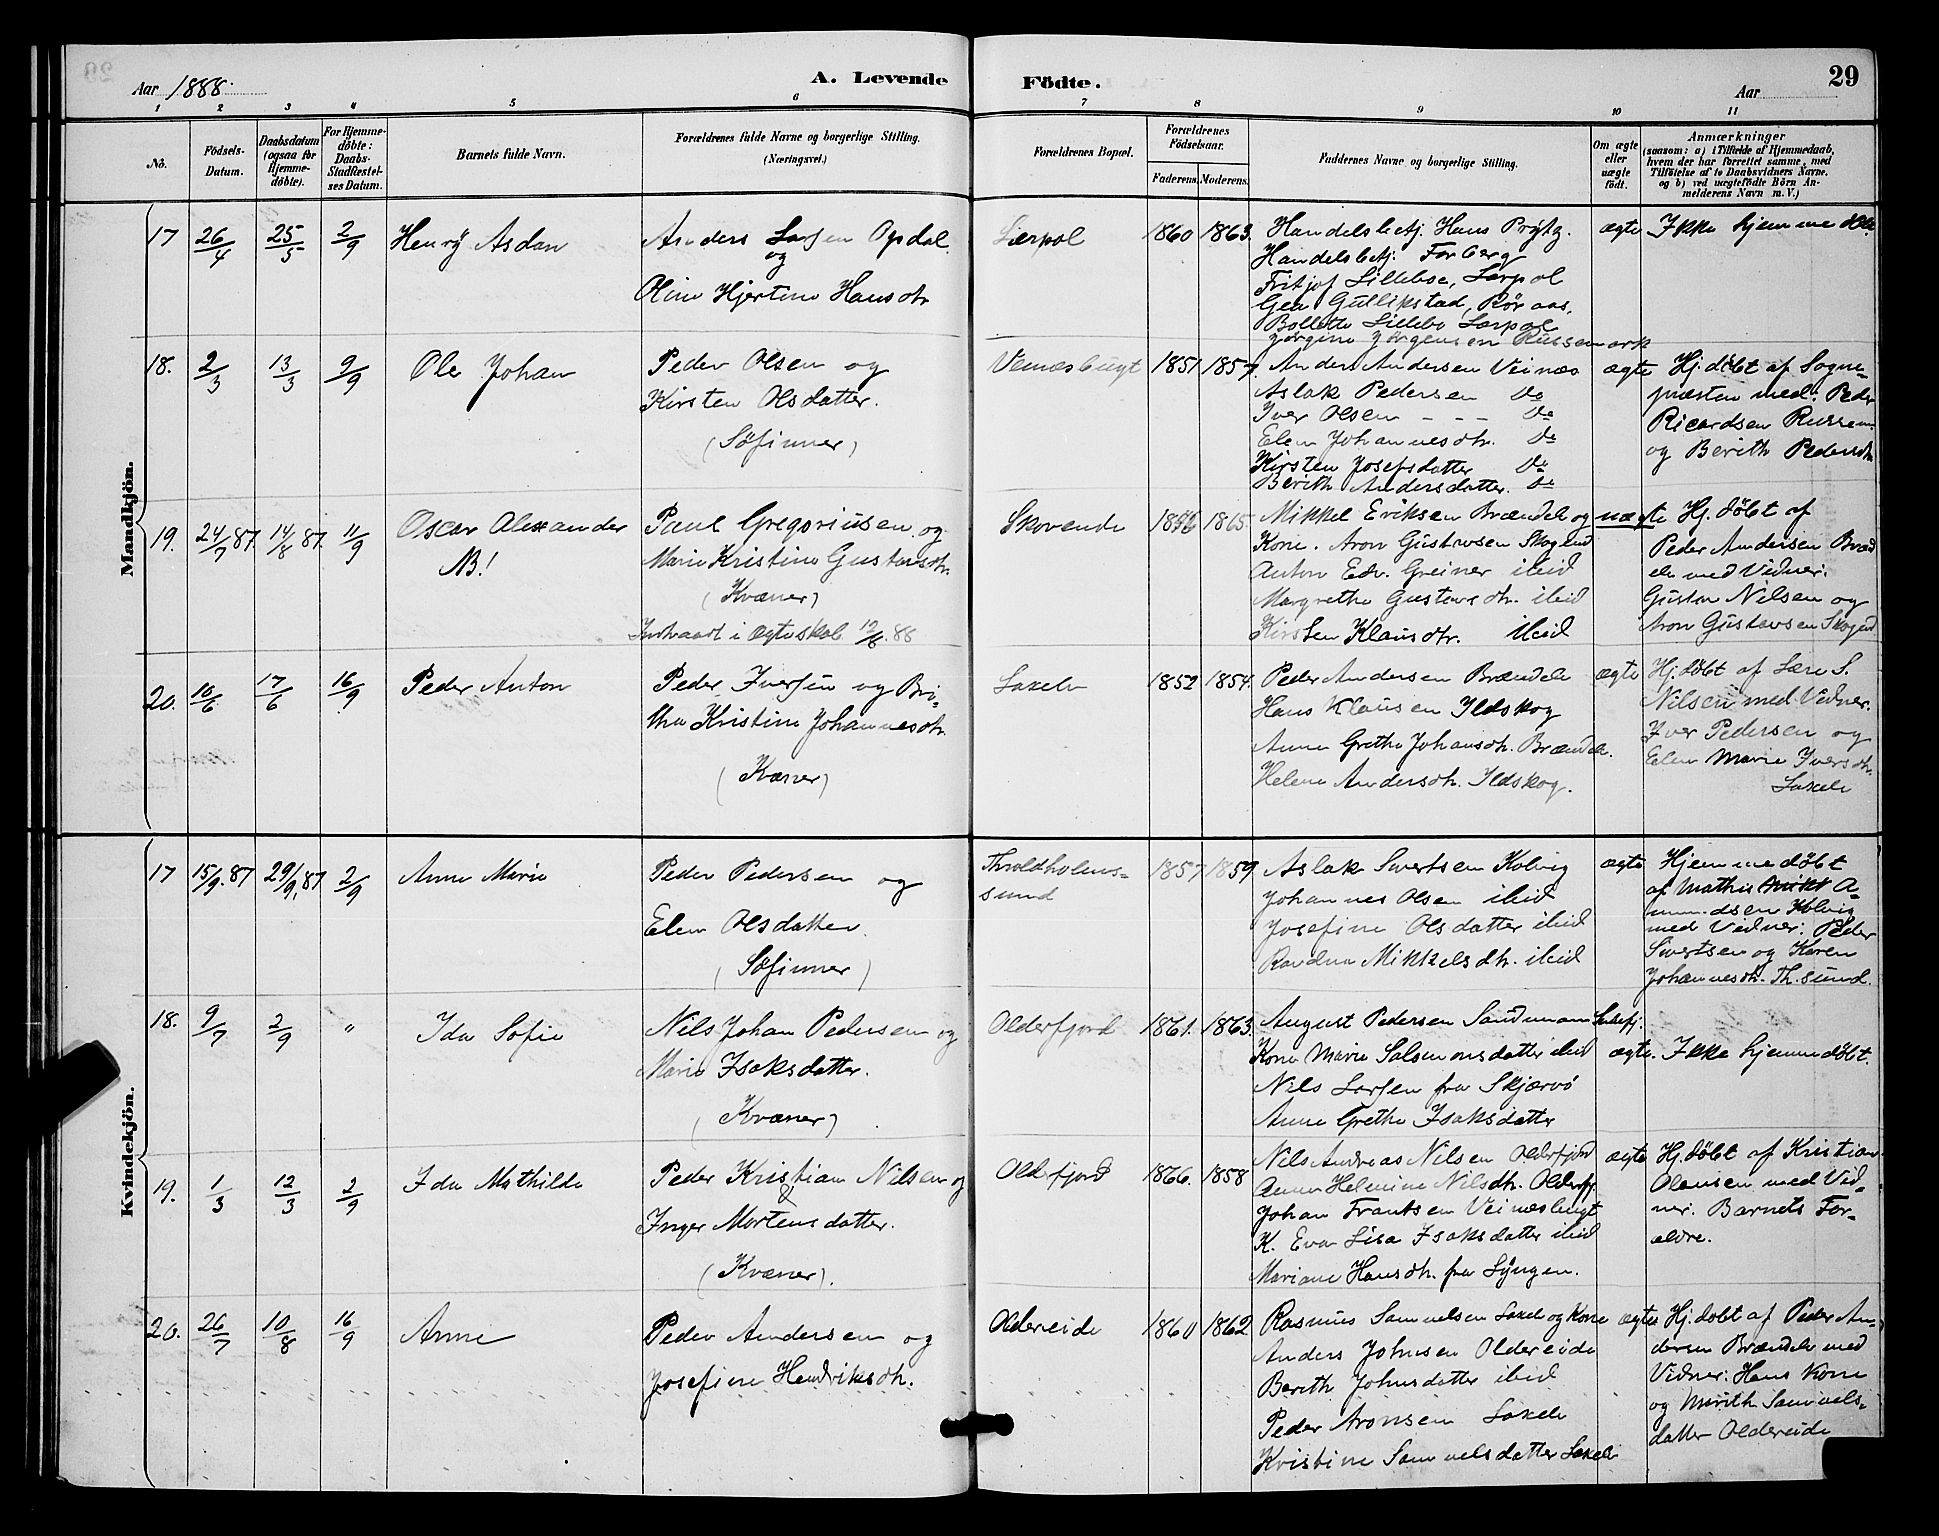 Aar 1888.
A. Levende
Födte.
29
Aar
1 2 3 4 5 6 7 8 9 10 11
No.
Födsels-Datum.
Daabsdatum (ogsaa for Hjemme-döbte).
For Hjemme-döbte: Daabs-Stadfæstel-ses Datum.
Barnets fulde Navn.
Forældrenes fulde Navne og borgerlige Stilling.
(Næringsvei.)
Forældrenes Bopæl.
Forældrenes Födselsaar.
Faderens. Moderens.
Faddernes Navne og borgerlige Stilling.
Om ægte eller uægte födt.
Anmærkninger
(saasom: a) i Tilfælde af Hjemmedaab,
hvem der har forrettet samme, med
Tilföielse af to Daabsvidners Navne.
og b) ved uægtefödte Börn An-
melderens Navn m. V.)
Mandkjön.
17 26/4 25/5 2/9 Henry Asdan
Anders Larsen Opdal
og
Oline Hjertine Hansdtr
Lærpol 1860 1863.
Handelsbetj. Hans Prytz.
Handelsbetj. Forberg
Fritjof Lilleboe, Lærpol
Gullikstad, Röraas,
Bollette Lillebo Lærpol
Jörgine Jörgensen Russemark
ægte Ikke hjemmedöbt
18. 2/3 13/3 9/9 Ole Johan
Peder Olsen og
Kirsten Olsdatter.
(Söfinner)
Veinæsbugt 1851 1857.
Anders Andersen Veinæs
Aslak Pedersen Do
Iver Olsen - - - Do
Elen Johannesdtr. Do
Kirsten Josefsdatter Do
Berith Andersdatter. Do
ægte Hj. döbt af Sogne-
præsten med: Peder
Ricardsen Russem.
og Berith Pedersdtr
19. 24/7 87. 14/8 87. 11/9 Oscar Alexander
NB!
Paul Gregoriusen og
Marie Kristine Gustavsdtr.
(Kvæner)
Indtraadt i Ægteskab 12/8. 88
Skovende 1856 1865.
Mikkel Eriksen Brændelv og
Kone. Aron Gustavsen Skogend
Anton Edv. Greiner ibid
Margrethe Gustavsdtr. ibid
Kirsten Klausdtr. ibid
uægte Hj. döbt af
Peder Andersen Brænd
elv med Vidner:
Gustav Nilsen og
Aron Gustavsen Skogend
20. 10/6 17/6 16/9 Peder Anton
Peder Iversen og Bri-
tha Kristine Johannesdtr.
(Kvæner)
Laxelv 1852 1854.
Peder Andersen Brændelv
Hans Klausen Ildskog
Anne Grethe Johansdtr. Brændelv.
Helene Andersdtr. Ildskog.
ægte Hj. döbt af Lære S.
Nilsen med Vidner.
Iver Pedersen og
Elen Marie Iversdtr.
Laxelv
Kvindekjön.
17 15/9. 87 29/9. 87 2/9 Anne Marie
Peder Pedersen og
Elen Olsdatter.
(Söfinner)
Throldholms-
sund
1857 1859
Aslak Sivertsen Kolvig
Johannes Olsen ibid
Josefine Olsdatter ibid
Ravdna Mikkelsdtr. ibid
ægte Hjemmedöbt
af Mathis A-
mundsen Kolvig
med Vidner: Peder
Sivertsen og Karen
Johannesdtr. Th.sund.
18. 9/7 2/9 " Ida Sofie
Nils Johan Pedersen og
Marie Isaksdatter.
(Kvæner)
Olderfjord 1861. 1863.
August Pedersen Sandmann
Kone Marie Salomonsdatter ibid
Nils Larsen fra Skjærvö
Anne Grethe Isaksdatter
ægte. Ikke hjemmedöbt.
19. 1/3 12/3 2/9 Ida Mathilde
Peder Kristian Nilsen og
Inger Mortensdatter.
(Kvæner).
Olderfjord 1866. 1858
Nils Andreas Nilsen Olderfjord
Anne Helmine Nilsdtr. Olderfj
Johan Frantsen Veinæsbugt
K. Eva Lisa Isaksdatter ibid
Mariane Hansdtr. fra Lyngen.
ægte Hj. döbt af Kristian
Olausen med Vid-
ner: Barnets For-
ældre.
20. 26/7 10/8 16/9 Anne
Peder Andersen og
Josefine Hendriksdtr.
Oldereide 1860 1862
Rasmus Samuelsen Laxelv og Kone
Anders Johnsen Oldereide
Berith Johnsdatter ibid
Peder Aronsen Laxelv
Kristine Samuelsdatter Laxelv
ægte Hj. döbt af Peder An-
dersen Brændelv med
Vidner: Hans Kone
og Marith Samuels-
datter Oldereide